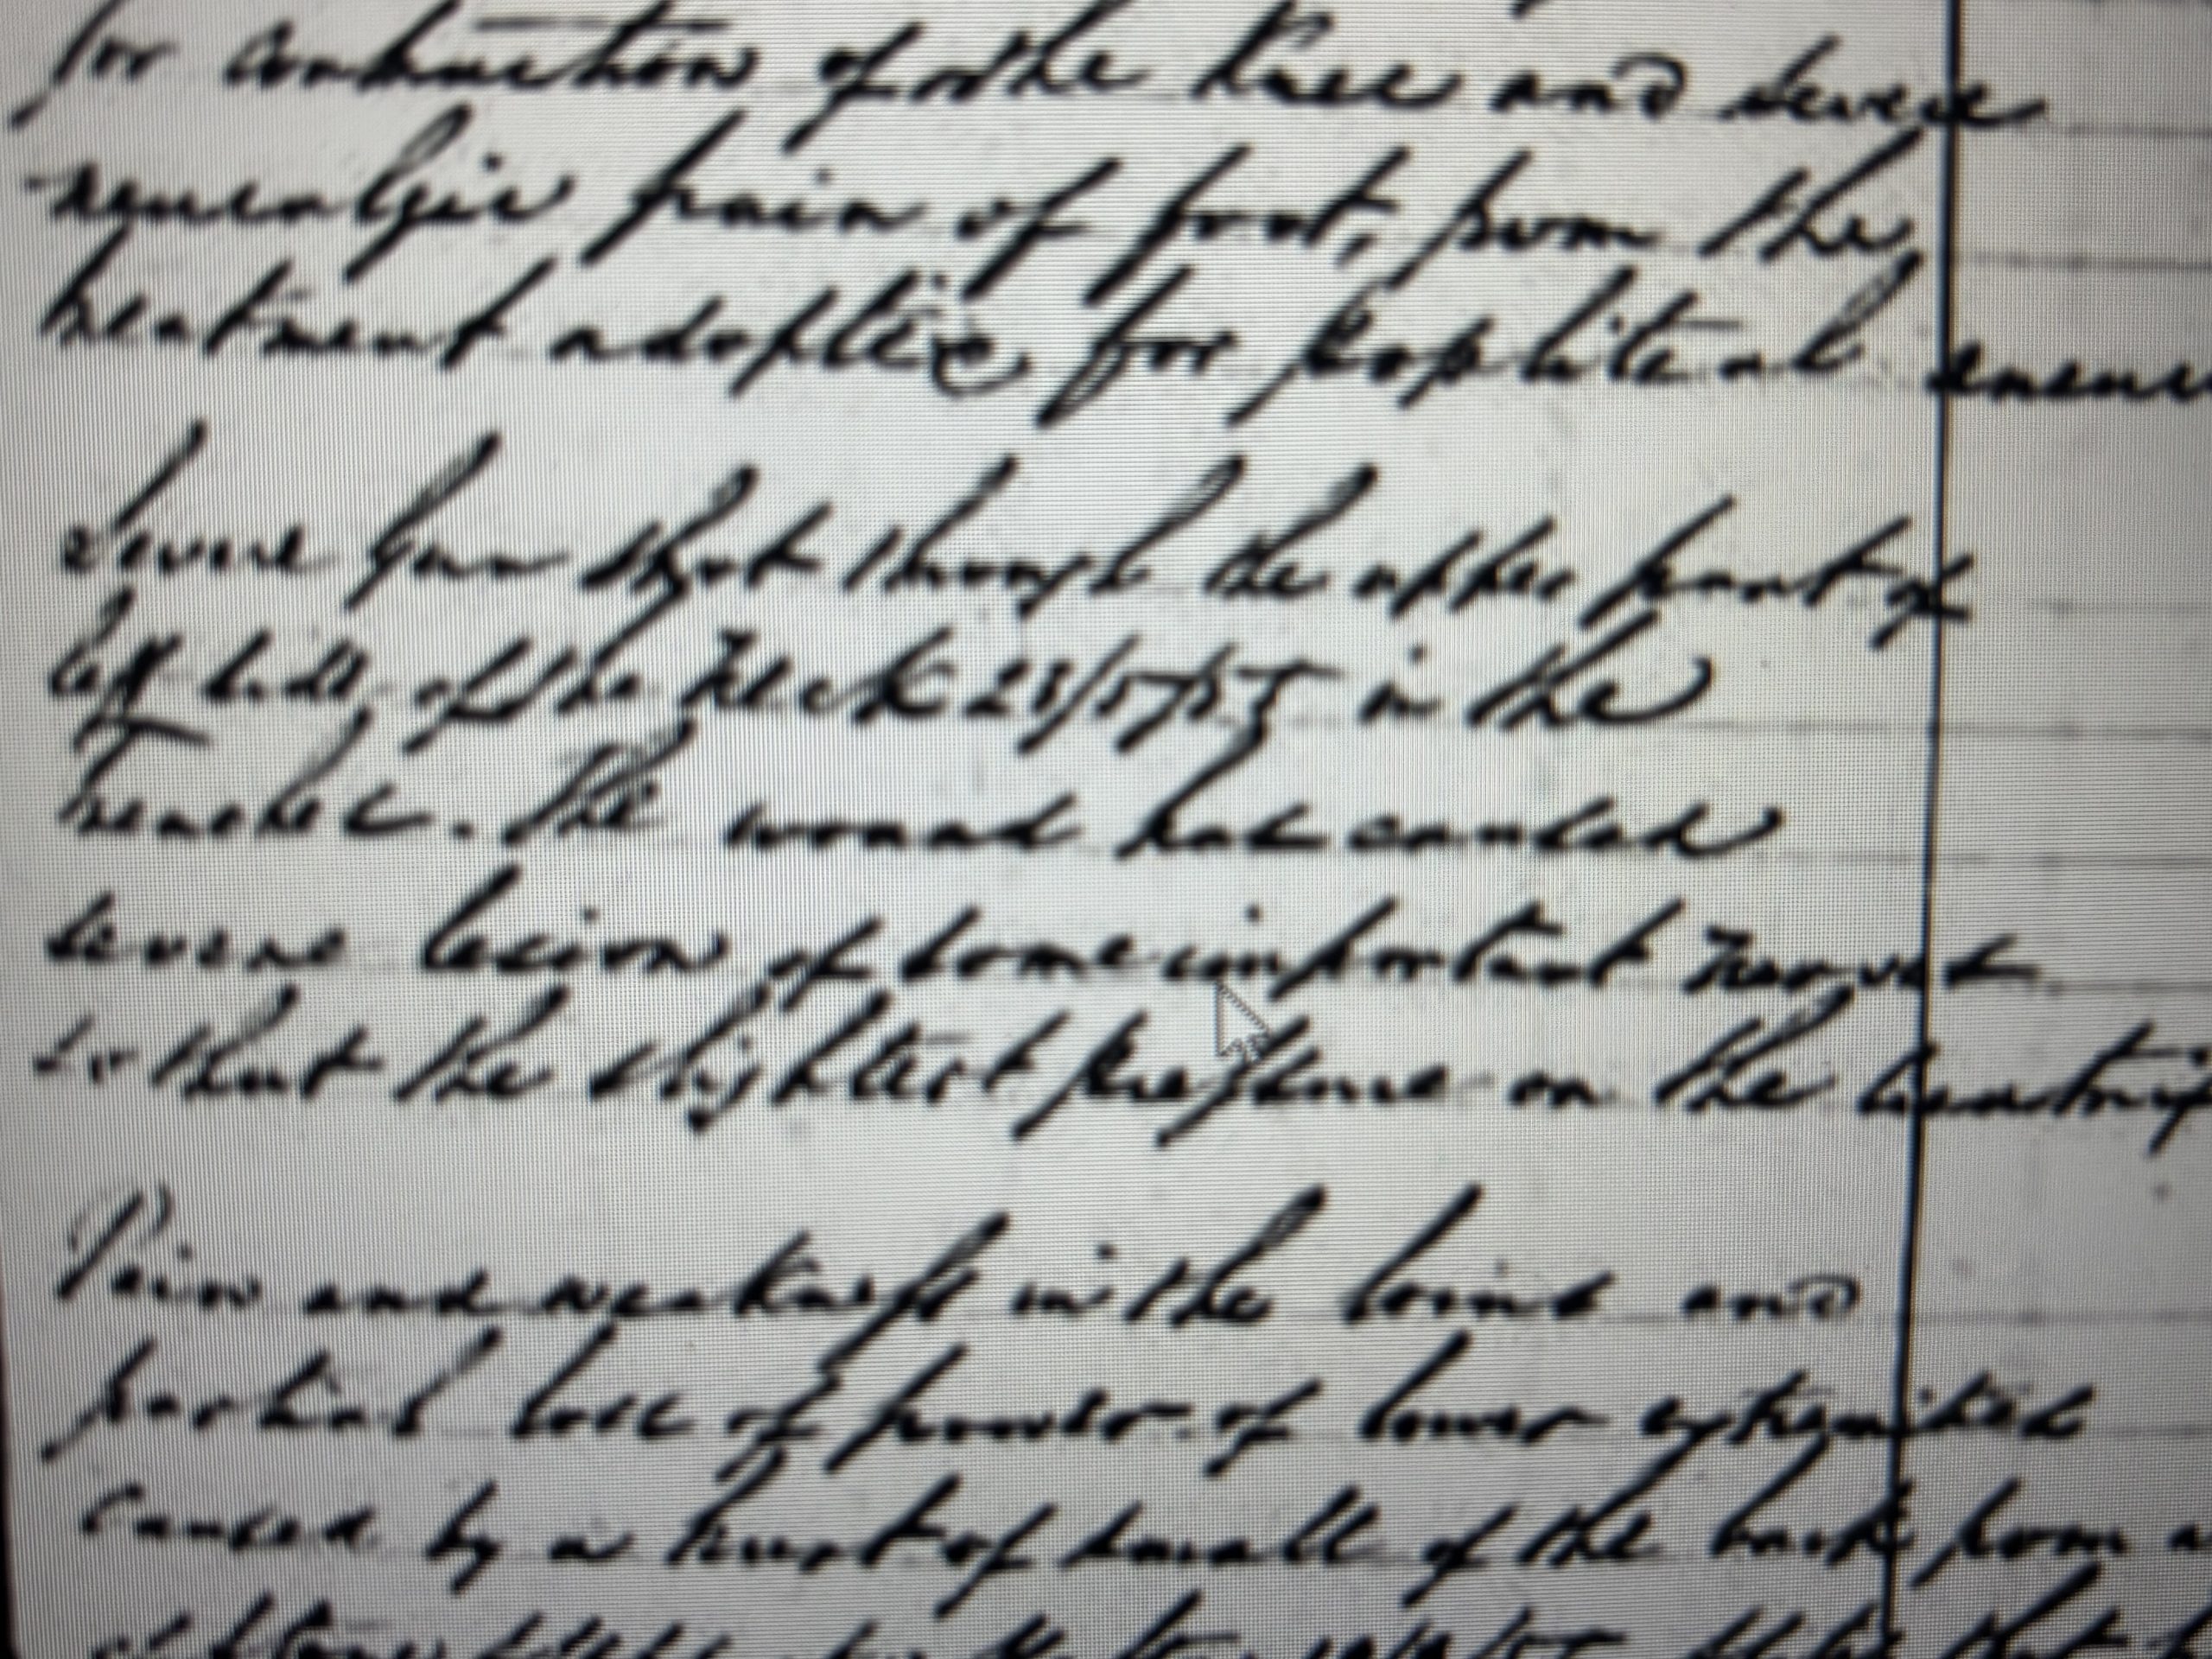 for contraction of the knee and severe
neuralgic pain of foot, from the
treatment adopted for popliteal aneur
Severe Gun Shot through the upper part of
left side, of the Neck 28/5/55 in the
trenches. The wound has caused
severe lesion of some important nerves
so that the slightest pressure on the
Pain and weakness in the loins and
partial loss of power of lower extremities
caused by a hurt of small of the back from a